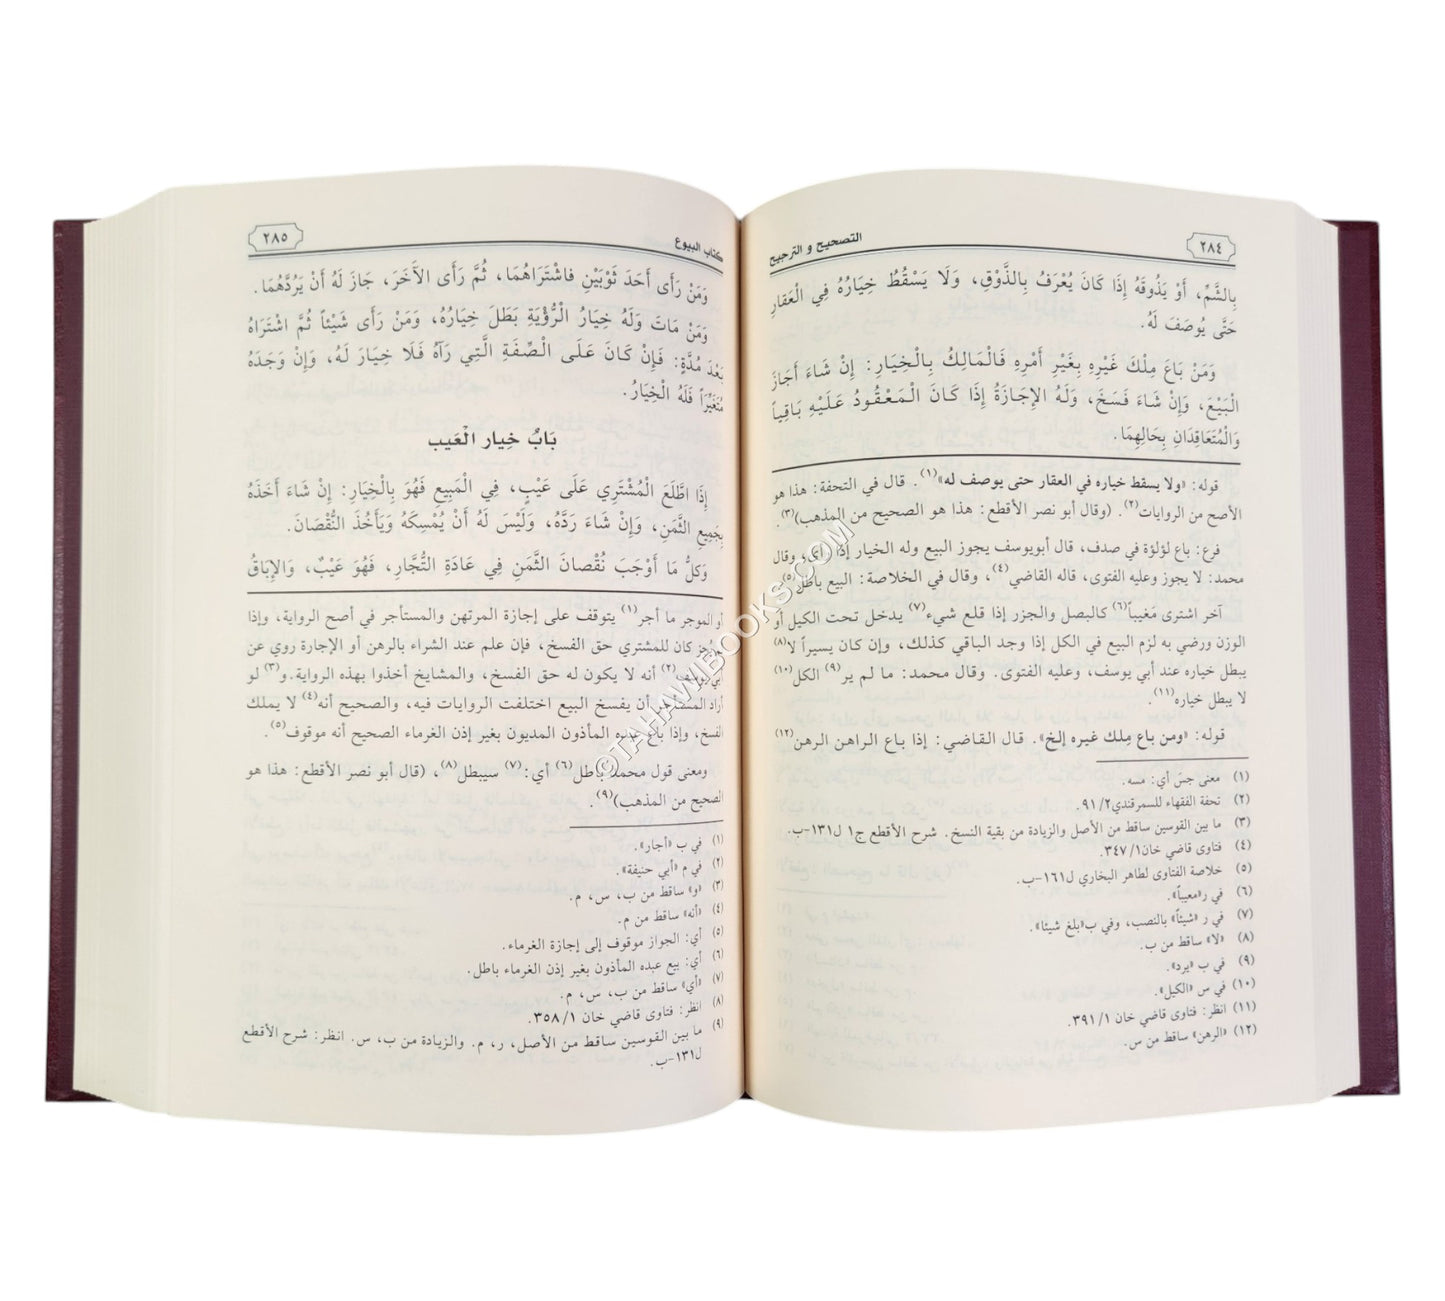 ٢٨٤
التصحيح و الترجيح
بِالشَّمِّ، أَوْ يَذُوقَهُ إِذَا كَانَ يُعْرَفُ بِالذَّوْقِ، وَلَا يَسْقُطُ خِيَارُهُ فِي الْعَقَارِ
حَتَّى يُوصَفَ لَهُ.
وَمَنْ بَاعَ مِلْكَ غَيْرِهِ بِغَيْرِ أَمْرِهِ فَالْمَالِكُ بِالْخِيَارِ: إِنْ شَاءَ أَجَازَ
الْبَيْعَ، وَإِنْ شَاءَ فَسَخَ، وَلَهُ الإِجَازَةُ إِذَا كَانَ الْمَعْقُودُ عَلَيْهِ بَاقِياً
وَالْمُتَعَاقِدَانِ بِحَالِهِمَا.
قوله: «ولا يسقط خياره في العقار حتى يوصف له»(١). قال في التحفة: هذا هو
الأصح من الروايات(٢). (وقال أبو نصر الأقطع: هذا هو الصحيح من المذهب)(٣).
فرع: باع لؤلؤة في صدف، قال أبويوسف يجوز البيع وله الخيار إذا رأى، وقال
محمد: لا يجوز وعليه الفتوى، قاله القاضي(٤)، وقال في الخلاصة: البيع باطل(٥)
آخر اشترى مَغيباً(٦) كالبصل والجزر إذا قلع شيء(٧) يدخل تحت الكيل أو
الوزن ورضي به لزم البيع في الكل إذا وجد الباقي كذلك، وإن كان يسيراً لا(٨)
يبطل خياره عند أبي يوسف، وعليه الفتوى. وقال محمد: ما لم ير(٩) الكل(١٠)
لا يبطل خياره(١١).
قوله: «ومن باع مِلك غيره إلخ». قال القاضي: إذا باع الراهن الرهن(١٢)
(١) معنى جسن أي: مسه.
(٢) تحفة الفقهاء للسمرقندي ٩١/٢.
(٣) ما بين القوسين ساقط من الأصل والزيادة من بقية النسخ. شرح الأقطع ج١ ل١٣١-ب.
(٤) فتاوى قاضي خان ٣٤٧/١.
(٥) خلاصة الفتاوى لطاهر البخاري ل١٦١-ب.
(٦) في ر«معيباً».
(٧) في ر «شيئاً» بالنصب، وفي ب«بلغ شيئا».
(٨) «لا» ساقط من ب.
(٩) في ب «يرد».
(١٠) في س «الكيل».
(١١) انظر: فتاوى قاضي خان ٣٩١/١.
(١٢) «الرهن» ساقط من س.
كتاب البيوع
٢٨٥
وَمَنْ رَأَى أَحَدَ ثَوْبَيْنِ فاشْتَرَاهُمَا، ثُمَّ رَأَى الآخَرَ، جَازَ لَهُ أَنْ يَرُدَّهُمَا.
وَمَنْ مَاتَ وَلَهُ خِيَارُ الْرُّؤْيَةِ بَطَلَ خِيَارُهُ، وَمَنْ رَأَى شَيْئاً ثُمَّ اشْتَرَاهُ
بَعْدَ مُدَّةٍ: فَإِنْ كَانَ عَلَى الْصِّفَةِ الَّتِي رَآهُ فَلَا خِيَارَ لَهُ، وَإِنْ وَجَدَهُ
مُتَغَيِّراً فَلَهُ الْخِيَارُ.
بَابُ خِيار الْعَيب
إِذَا اطَّلَعَ الْمُشْتَرِي عَلَى عَيْبٍ، فِي الْمَبِيعِ فَهُوَ بِالْخِيَارِ: إِنْ شَاءَ أَخَذَهُ
بِجَمِيعِ الثَّمَنِ، وَإِنْ شَاءَ رَدَّهُ، وَلَيْسَ لَهُ أَنْ يُمْسِكَهُ وَيَأْخُذَ النُّقْصَانَ.
وَكلُّ مَا أَوْجَبَ نُقْصَانَ الثَّمَنِ فِي عَادَةِ التُّجَّارِ، فَهُوَ عَيْبٌ، وَالإِبَاقُ
أو الموجر ما أجر(١) يتوقف على إجازة المرتهن والمستأجر في أصح الرواية، وإذا
لم يُجز كان للمشتري حق الفسخ، فإن علم عند الشراء بالرهن أو الإجارة روي عن
أبي يوسف(٢) أنه لا يكون له حق الفسخ، والمشايخ أخذوا بهذه الرواية. و(٣) لو
أراد المستأجر أن يفسخ البيع اختلفت الروايات فيه، والصحيح أنه(٤) لا يملك
الفسخ، وإذا باع عبده المأذون المديون بغير إذن الغرماء الصحيح أنه موقوف(٥).
ومعنى قول محمد باطل(٦) أي:(٧) سيبطل(٨)، (قال أبو نصر الأقطع: هذا هو
الصحيح من المذهب)(٩).
(١) في ب «أجار».
(٢) في م «أبي حنيفة».
(٣) «و» ساقط من ب، س، م.
(٤) «أنه» ساقط من م.
(٥) أي: الجواز موقوف إلى إجازة الغرماء.
(٦) أي: بيع عبده المأذون بغير إذن الغرماء باطل.
(٧) «أي» ساقط من ب، س، م.
(٨) انظر: فتاوى قاضي خان ٣٥٨/١.
(٩) ما بين القوسين ساقط من الأصل، ر، م. والزيادة من ب، س. انظر: شرح الأقطع
ل١٣١-ب.
©TAHAVIBOOKS.COM